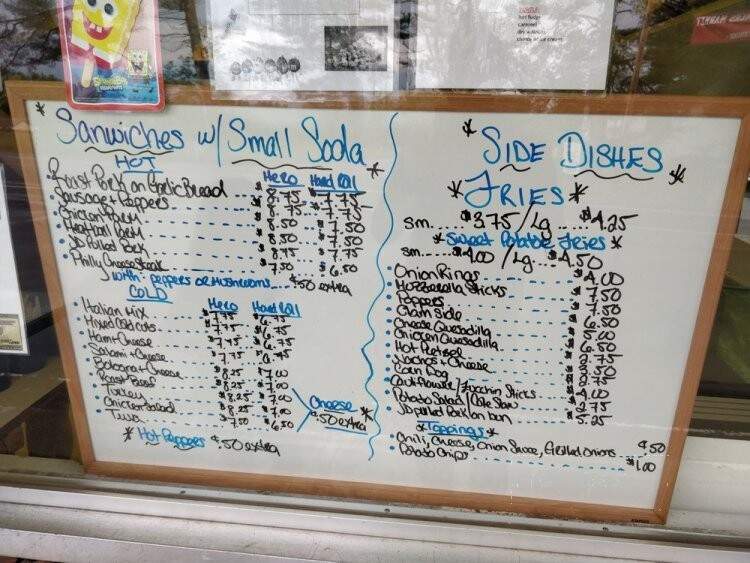 * Sanwiches w/ Small Soda *
HOT
Hero Hard Roll
Roast Pork on Garlic Bread $8.75 $7.75
Sausage + Peppers $8.75 $7.75
Chicken Parm $8.50 $7.50
Meatball Parm $8.50 $7.50
JD Pulled Pork $8.75 $7.75
Philly Cheese Steak $7.50 $6.50
with: peppers or mushrooms $.50 extra
COLD
Hero Hard Roll
Italian Mix $7.75 $6.75
Mixed Cold cuts $7.75 $6.75
Ham + Cheese $7.75 $6.75
Salami + Cheese $7.75 $6.75
Bologna + Cheese
Roast Beef $8.25 $7.00
Turkey $8.25 $7.00
Chicken Salad $8.25 $7.00
Tuna $7.50 $6.50
Cheese
$.50 extra *
* Hot Peppers $.50 extra
* SIDE DISHES *
* FRIES *
sm. $3.75 / Lg. $4.25
* Sweet Potatoe Fries *
sm. $4.00 / Lg. $4.50
Onion Rings $4.00
Mozzerella Sticks $7.50
Poppers $7.50
Clam Side $6.50
Cheese Quesadilla $5.00
Chicken Quesadilla $6.50
Hot Pretzel $2.75
Nachos + Cheese $3.50
Corn Dog $2.75
Cauliflower / Zucchin Sticks $4.00
Potato Salad / Cole Slaw $2.75
JD pulled Pork on bun $5.25
* Toppings *
Chili, Cheese, Onion Sauce, Grilled Onions $.50
Potato Chips $1.00
hot fudge
caramel